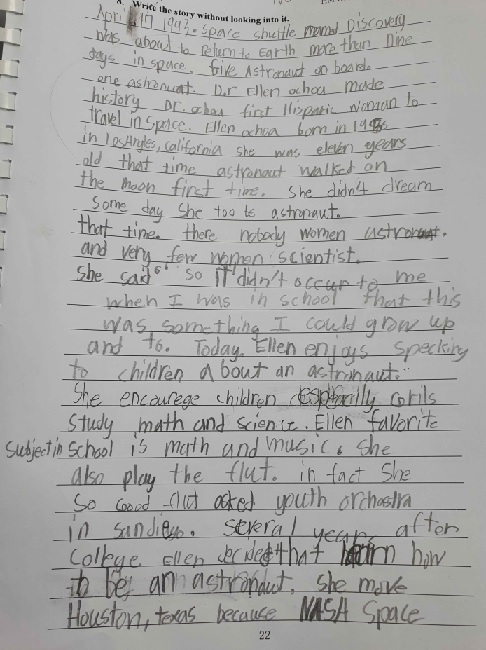 Write the story without looking into it.
April 17 1993. Space shuttle named Discovery
was about to Return to Earth more than Nine
days in space. five Astronaut on board
one astronaut. Dr Ellen ochoa made
history Dr. ochoa first Hispanic woman to
travel in space. Ellen ochoa born in 1958
in Los Angles, California she was eleven years
old that time astronaut walked on
the moon first time. she didn't dream
some day she too be astronaut.
that time. there nobody women astronaut.
and very few women scientist.
she said " so it didn't occur to me
when I was in school that this
was something I could grow up
and to. Today. Ellen enjoys specking
to children about an astronaut."
She encourage children especially
study math and science. Ellen favorite
subject in school is math and music. she
also play the flut. in fact she
so good flut asked youth orchestra
in sandiego. several years after
College. Ellen decided that learn how
to be an astronaut. she move
Houston, texas because NASA space
22